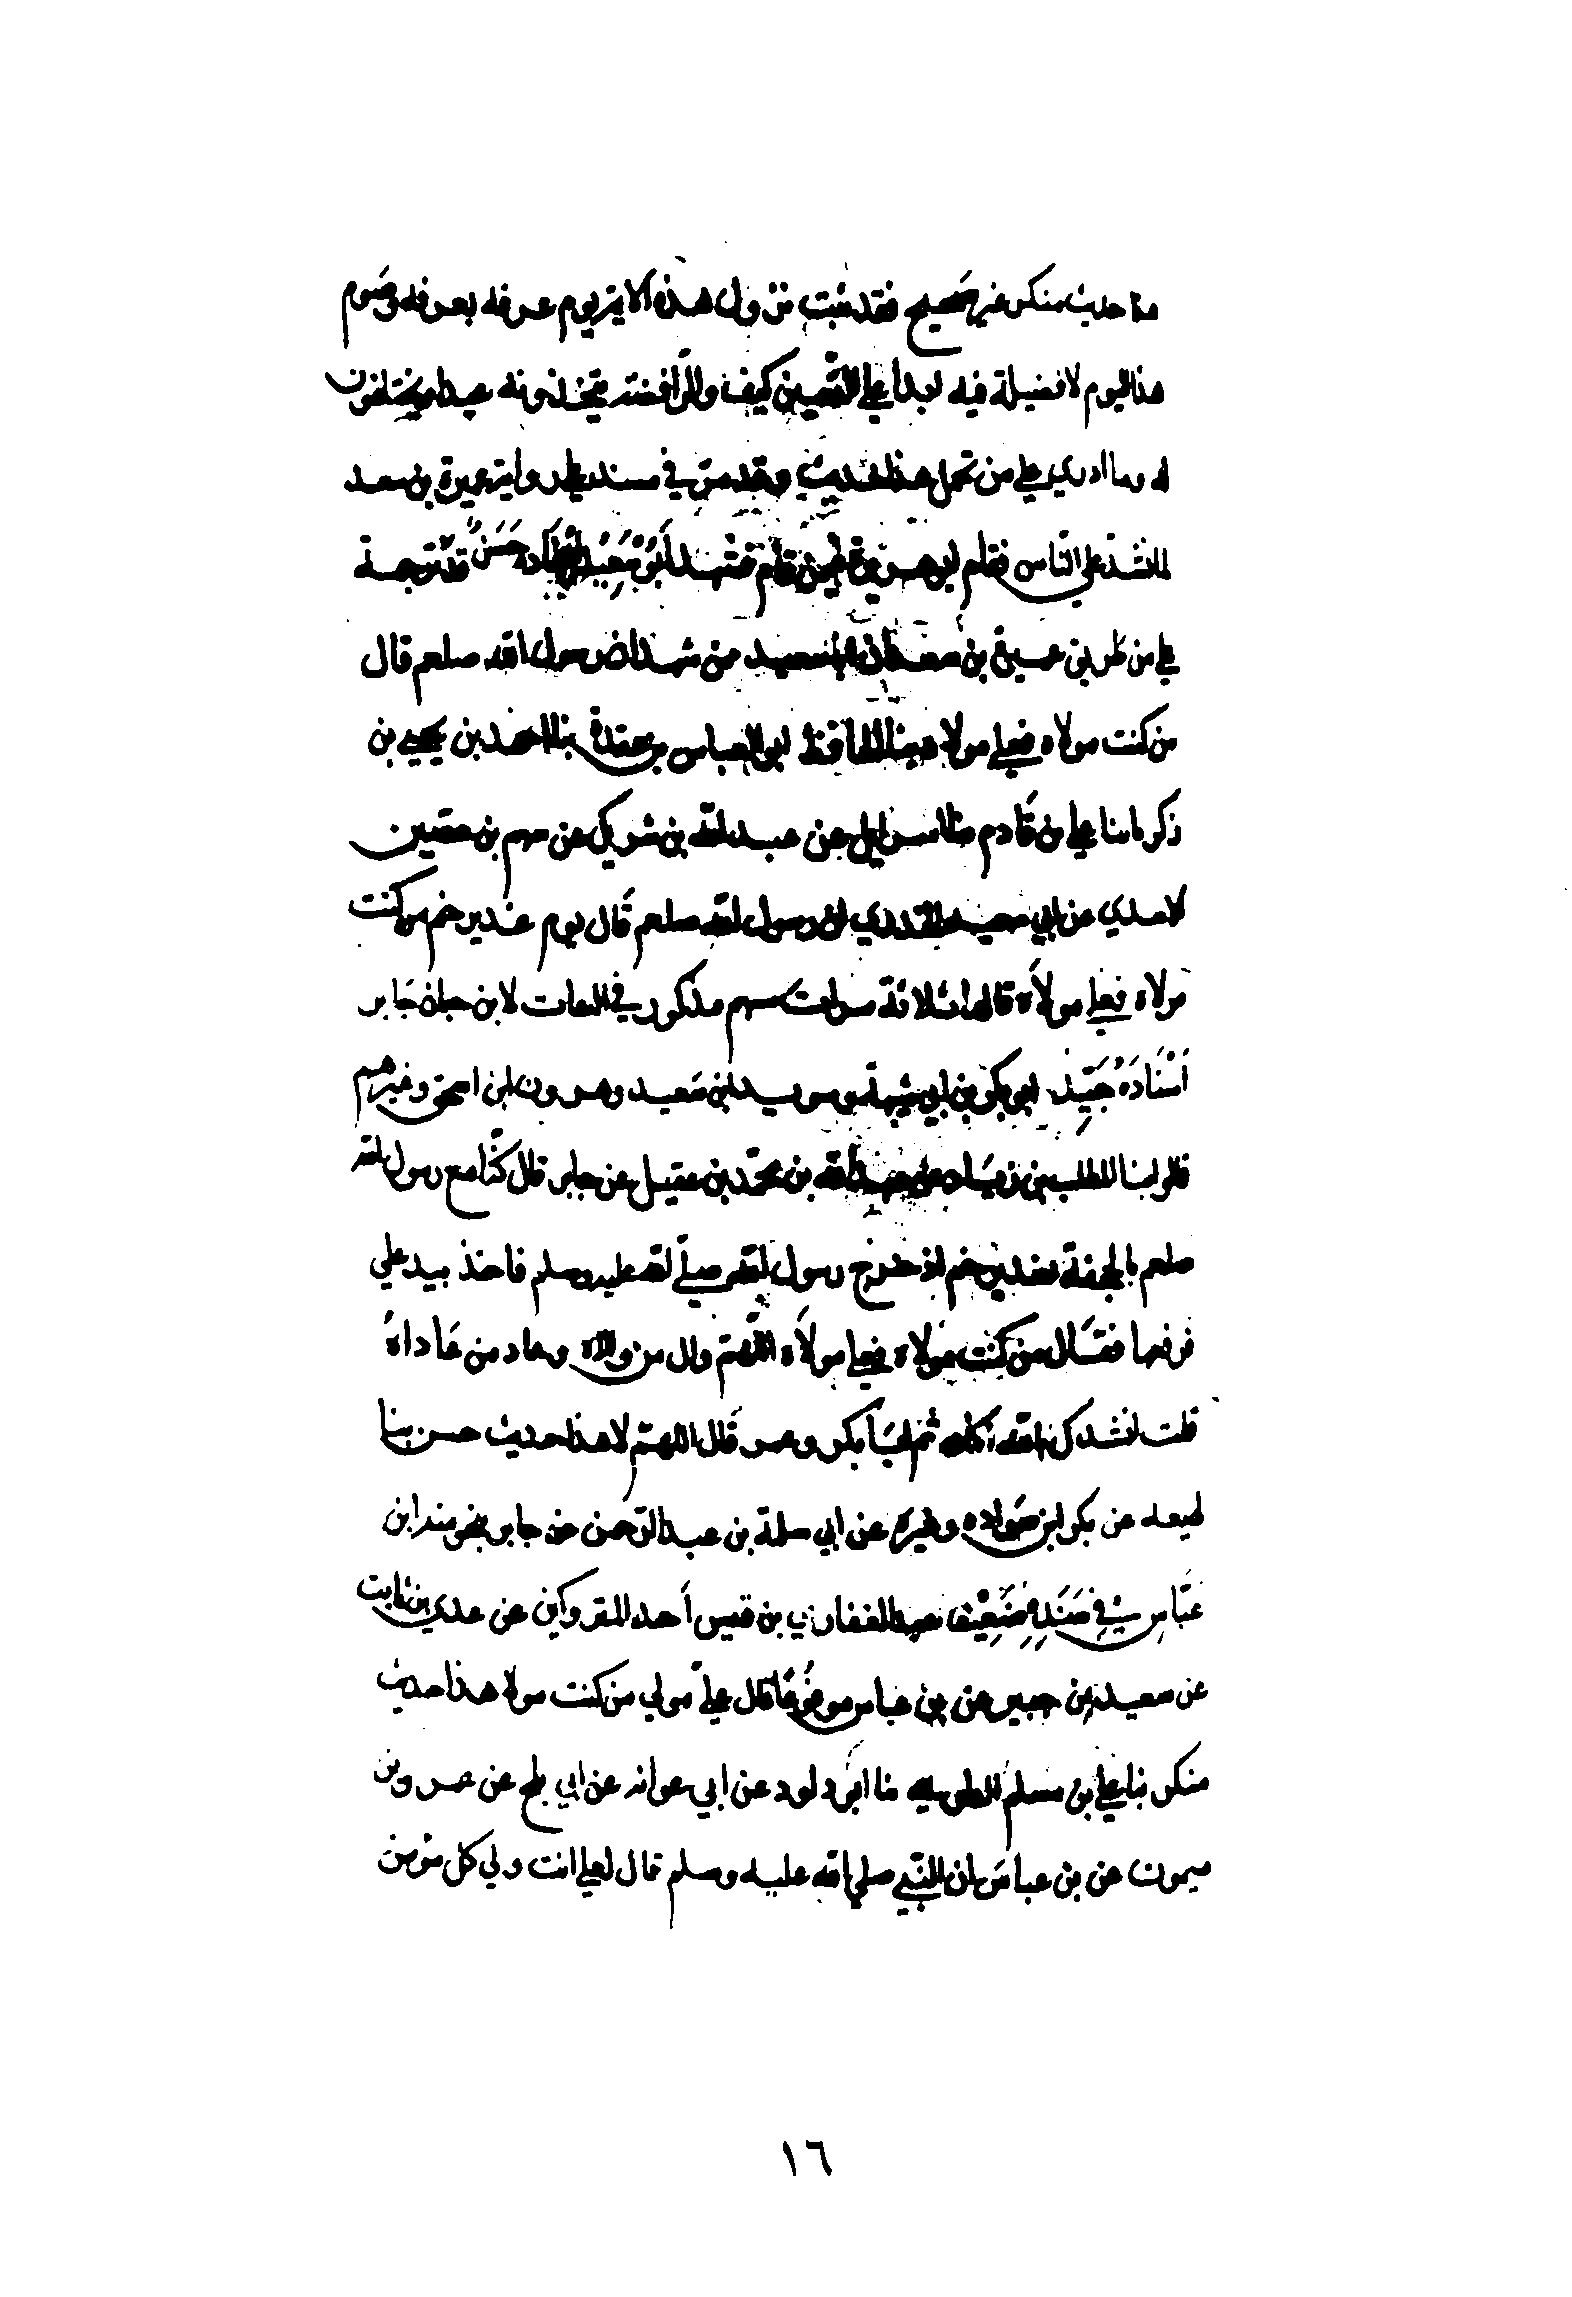 هذا حديث منكر غير صحيح فقد ثبت نزول هذه الاية يوم عرفه بعرفه وصوم
هذا اليوم لا فضيلة فيه ابدا علي التعيين كيف والرافضة يتخذونه عيدا ويختلفون
له وما ادري علي من تحمل هذا الحديث وقد مر في مسند علي رواية عميرة بن سعد
لما نشد علي الناس فقام ابو هريرة فيمن قام فشهد أبو سعيد حَسَنٌ قد ترجمة
علي من طريق بن سعد ان ابا سعيد من شهد ان رسول الله صلعم قال
من كنت مولاه فعلي مولاه الحافظ ابو العباس بن عقدة بنا احمد بن يحيي بن
زكريا بنا علي بن قادم بنا اسرايل عن عبد الله بن شريك عن سهم بن حصين
لاسدي عن ابي سعيد الخدري ان رسول الله صلعم قال يوم غدير خم من كنت
مولاه فعلي مولاه قالها ثلاثة مرات سهم مذكور في الثقات لابن حبان جابر
أسْنَادَهُ جَيِّد ابو بكر بن ابي شيبة وسويد بن سعيد وهرون ابن اسحق وغيرهم
قالوا بنا المطلب بن زياد عن عبد الله بن محمّد بن عقيل عن جابر قال كنّا مع رسول الله
صلعم بالجحفة بغدير خم اذ خرج رسول الله صلّي الله عليه وسلم فاخذ بيد علي
فرفعها فقال من كنت مولاه فعلي مولاه اللّهمّ وال من والاه وعاد من عاداه
قلت انشدك بالله أكان ثم ابا بكر وعمر قال اللهمّ لا هذا حديث حسن بنا
لهيعه عن بكر ابن سوادة وغيره عن ابي سلمة بن عبد الرّحمن عن جابر بنحو منه ابن
عبّاسٍ في سَنَدِهِ ضَعِيْف عبد الغفار بن قيس أحد المتروكين عن عدي بن ثابت
عن سعيد بن جبير عن بن عباس مرفوعًا قال عليّ مولي من كنت مولاه هذا حديث
منكر بنا علي بن مسلم الطوسي بنا ابو داود عن ابي عوانه عن ابي بلج عن عمرو بن
ميمون عن بن عباس ان النّبي صلي الله عليه وسلم قال لعلي انت ولي كل مؤمن
١٦